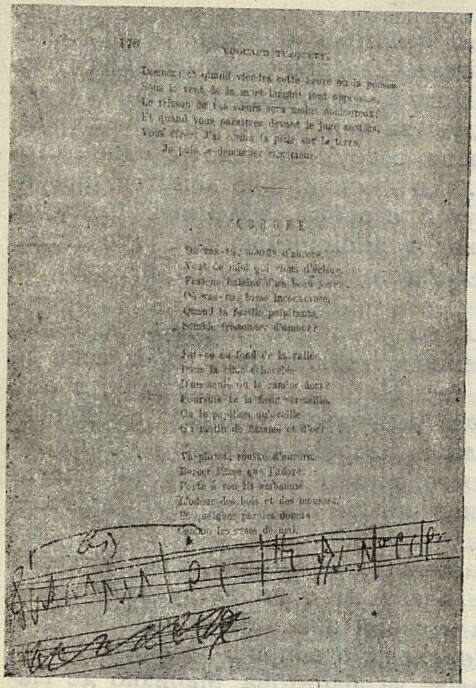 176
ÉDOUARD TURQUETY.
Donnez: et quand viendra cette heure où la pensée
Sous le vent de la mort languit tout oppressée,
Le frisson de vos cœurs sera moins douloureux;
Et quand vous paraîtrez devant le juge austère,
Vous direz: J'ai connu la pitié sur la terre,
Je puis la demander aux cieux.
AURORE
Où vas-tu, souffle d'aurore,
Vent de miel qui viens d'éclore,
Fraîche haleine d'un beau jour?
Où vas-tu, brise inconstante,
Quand la feuille palpitante
Semble frissonner d'amour?
Est-ce au fond de la vallée,
Dans la cime échevelée
D'un saule où le ramier dort?
Poursuis-tu la fleur vermeille,
Ou le papillon qu'éveille
Un matin de flamme et d'or?
Va plutôt, souffle d'aurore,
Bercer l'âme que j'adore:
Porte à son lit embaumé
L'odeur des bois et des mousses,
Et quelques paroles douces
Comme les roses de mai.